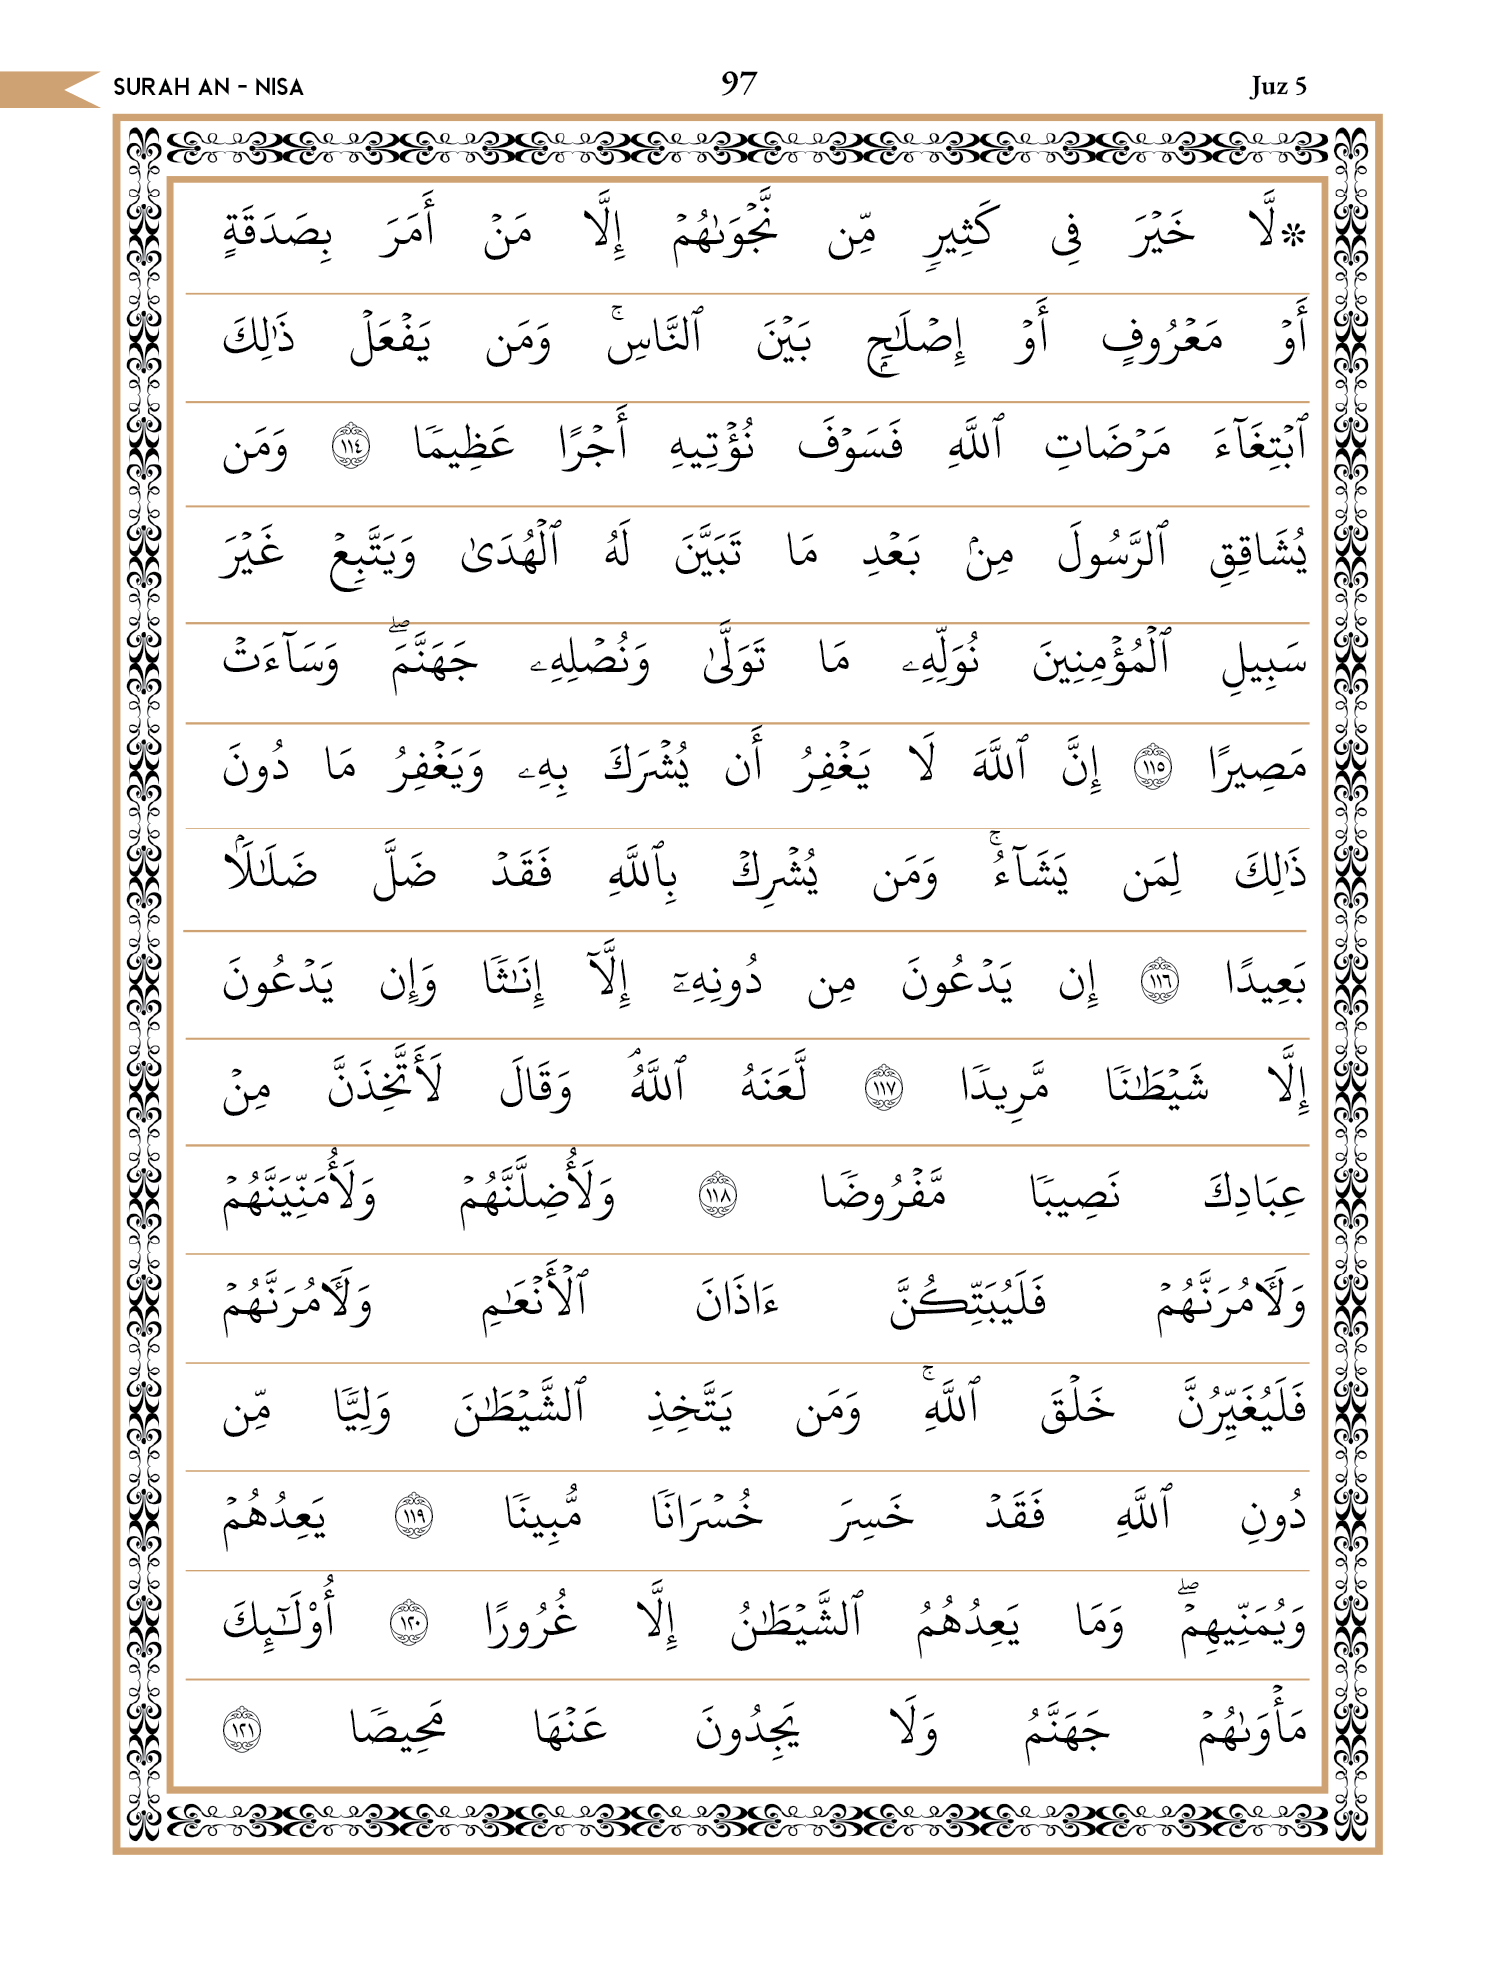 SURAH AN - NISA 97 Juz 5
۞لَّا خَيۡرَ فِي كَثِيرٖ مِّن نَّجۡوَىٰهُمۡ إِلَّا مَنۡ أَمَرَ بِصَدَقَةٍ
أَوۡ مَعۡرُوفٍ أَوۡ إِصۡلَٰحِۭ بَيۡنَ ٱلنَّاسِۚ وَمَن يَفۡعَلۡ ذَٰلِكَ
ٱبۡتِغَآءَ مَرۡضَاتِ ٱللَّهِ فَسَوۡفَ نُؤۡتِيهِ أَجۡرًا عَظِيمٗا ١١٤ وَمَن
يُشَاقِقِ ٱلرَّسُولَ مِنۢ بَعۡدِ مَا تَبَيَّنَ لَهُ ٱلۡهُدَىٰ وَيَتَّبِعۡ غَيۡرَ
سَبِيلِ ٱلۡمُؤۡمِنِينَ نُوَلِّهِۦ مَا تَوَلَّىٰ وَنُصۡلِهِۦ جَهَنَّمَۖ وَسَآءَتۡ
مَصِيرًا ١١٥ إِنَّ ٱللَّهَ لَا يَغۡفِرُ أَن يُشۡرَكَ بِهِۦ وَيَغۡفِرُ مَا دُونَ
ذَٰلِكَ لِمَن يَشَآءُۚ وَمَن يُشۡرِكۡ بِٱللَّهِ فَقَدۡ ضَلَّ ضَلَٰلَۢا
بَعِيدًا ١١٦ إِن يَدۡعُونَ مِن دُونِهِۦٓ إِلَّآ إِنَٰثٗا وَإِن يَدۡعُونَ
إِلَّا شَيۡطَٰنٗا مَّرِيدٗا ١١٧ لَّعَنَهُ ٱللَّهُۘ وَقَالَ لَأَتَّخِذَنَّ مِنۡ
عِبَادِكَ نَصِيبٗا مَّفۡرُوضٗا ١١٨ وَلَأُضِلَّنَّهُمۡ وَلَأُمَنِّيَنَّهُمۡ
وَلَأٓمُرَنَّهُمۡ فَلَيُبَتِّكُنَّ ءَاذَانَ ٱلۡأَنۡعَٰمِ وَلَأٓمُرَنَّهُمۡ
فَلَيُغَيِّرُنَّ خَلۡقَ ٱللَّهِۚ وَمَن يَتَّخِذِ ٱلشَّيۡطَٰنَ وَلِيّٗا مِّن
دُونِ ٱللَّهِ فَقَدۡ خَسِرَ خُسۡرَانٗا مُّبِينٗا ١١٩ يَعِدُهُمۡ
وَيُمَنِّيهِمۡۖ وَمَا يَعِدُهُمُ ٱلشَّيۡطَٰنُ إِلَّا غُرُورًا ١٢٠ أُوْلَٰٓئِكَ
مَأۡوَىٰهُمۡ جَهَنَّمُ وَلَا يَجِدُونَ عَنۡهَا مَحِيصٗا ١٢١